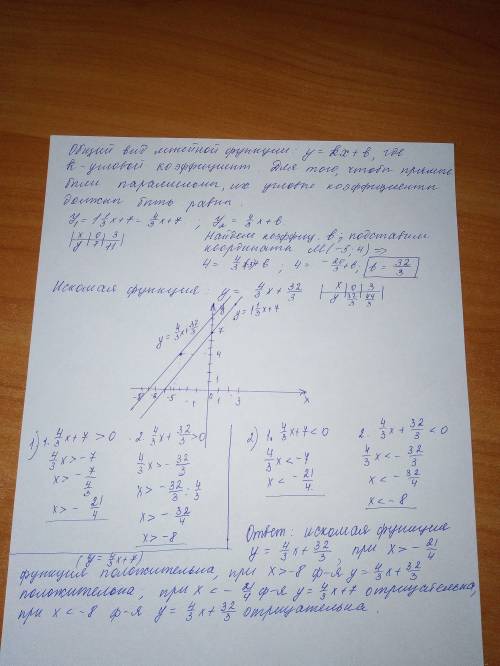 Общий вид линейной функции: y = kx + b, где
k - угловой коэффициент. Для того, чтобы прямые
были параллельны, их угловые коэффициенты
должны быть равны.
y₁ = 1 1/3 x + 7 = 4/3 x + 7 ; y₂ = 4/3 x + b.
x | 0 | 3
y | 7 | 11
Найдем коэффиц. b; подставим
координаты M(-5; 4) ⇒
4 = 4/3 · (-5) + b ; 4 = -20/3 + b; b = 32/3
Искомая функция: y = 4/3 x + 32/3
x | 0 | 3
y | 32/3 | 44/3
y = 4/3 x + 32/3
y = 1 1/3 x + 7
7
4
1
-8 -5 -1 0 1 3 x
1) 1. 4/3 x + 7 > 0
4/3 x > -7
x > - 7 / 4/3
x > - 21/4
2. 4/3 x + 32/3 > 0
4/3 x > - 32/3
x > - 32/3 : 4/3
x > - 32/4
x > -8
2) 1. 4/3 x + 7 < 0
4/3 x < -7
x < - 21/4
2. 4/3 x + 32/3 < 0
4/3 x < - 32/3
x < - 32/4
x < -8
Ответ: искомая функция
y = 4/3 x + 32/3, при x > - 21/4
(y = 4/3 x + 7)
функция положительна, при x > -8 ф-я y = 4/3 x + 32/3
положительна, при x < - 21/4 ф-я y = 4/3 x + 7 отрицательна,
при x < -8 ф-я y = 4/3 x + 32/3 отрицательна.